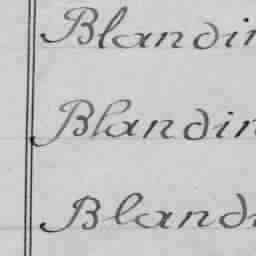 Blandin
Blandin
Bland